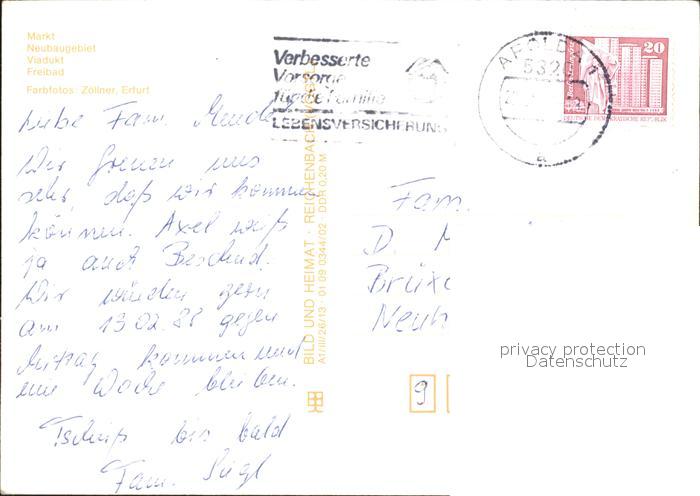 Markt
Neubaugebiet
Viadukt
Freibad
Farbfotos: Zöllner, Erfurt
Verbesserte
Vorsorge
für die Familie
LEBENSVERSICHERUNG
APOLDA 1
532
a
20
DEUTSCHE DEMOKRATISCHE REPUBLIK
Liebe Fam.
Wir freuen uns
sehr, daß wir kommen
können. Axel weiß
ja auch Bescheid.
Wir würden gern
am 13.02.88 gegen
Mittag kommen und
eine Woche bleiben.
Tschüß bis bald
Fam.
BILD UND HEIMAT · REICHENBACH
A1/III/26/13 · 01 09 0344/02 · DDR 0,20 M
Fam.
D. M
Brüx
Neuh
9
privacy protection
Datenschutz